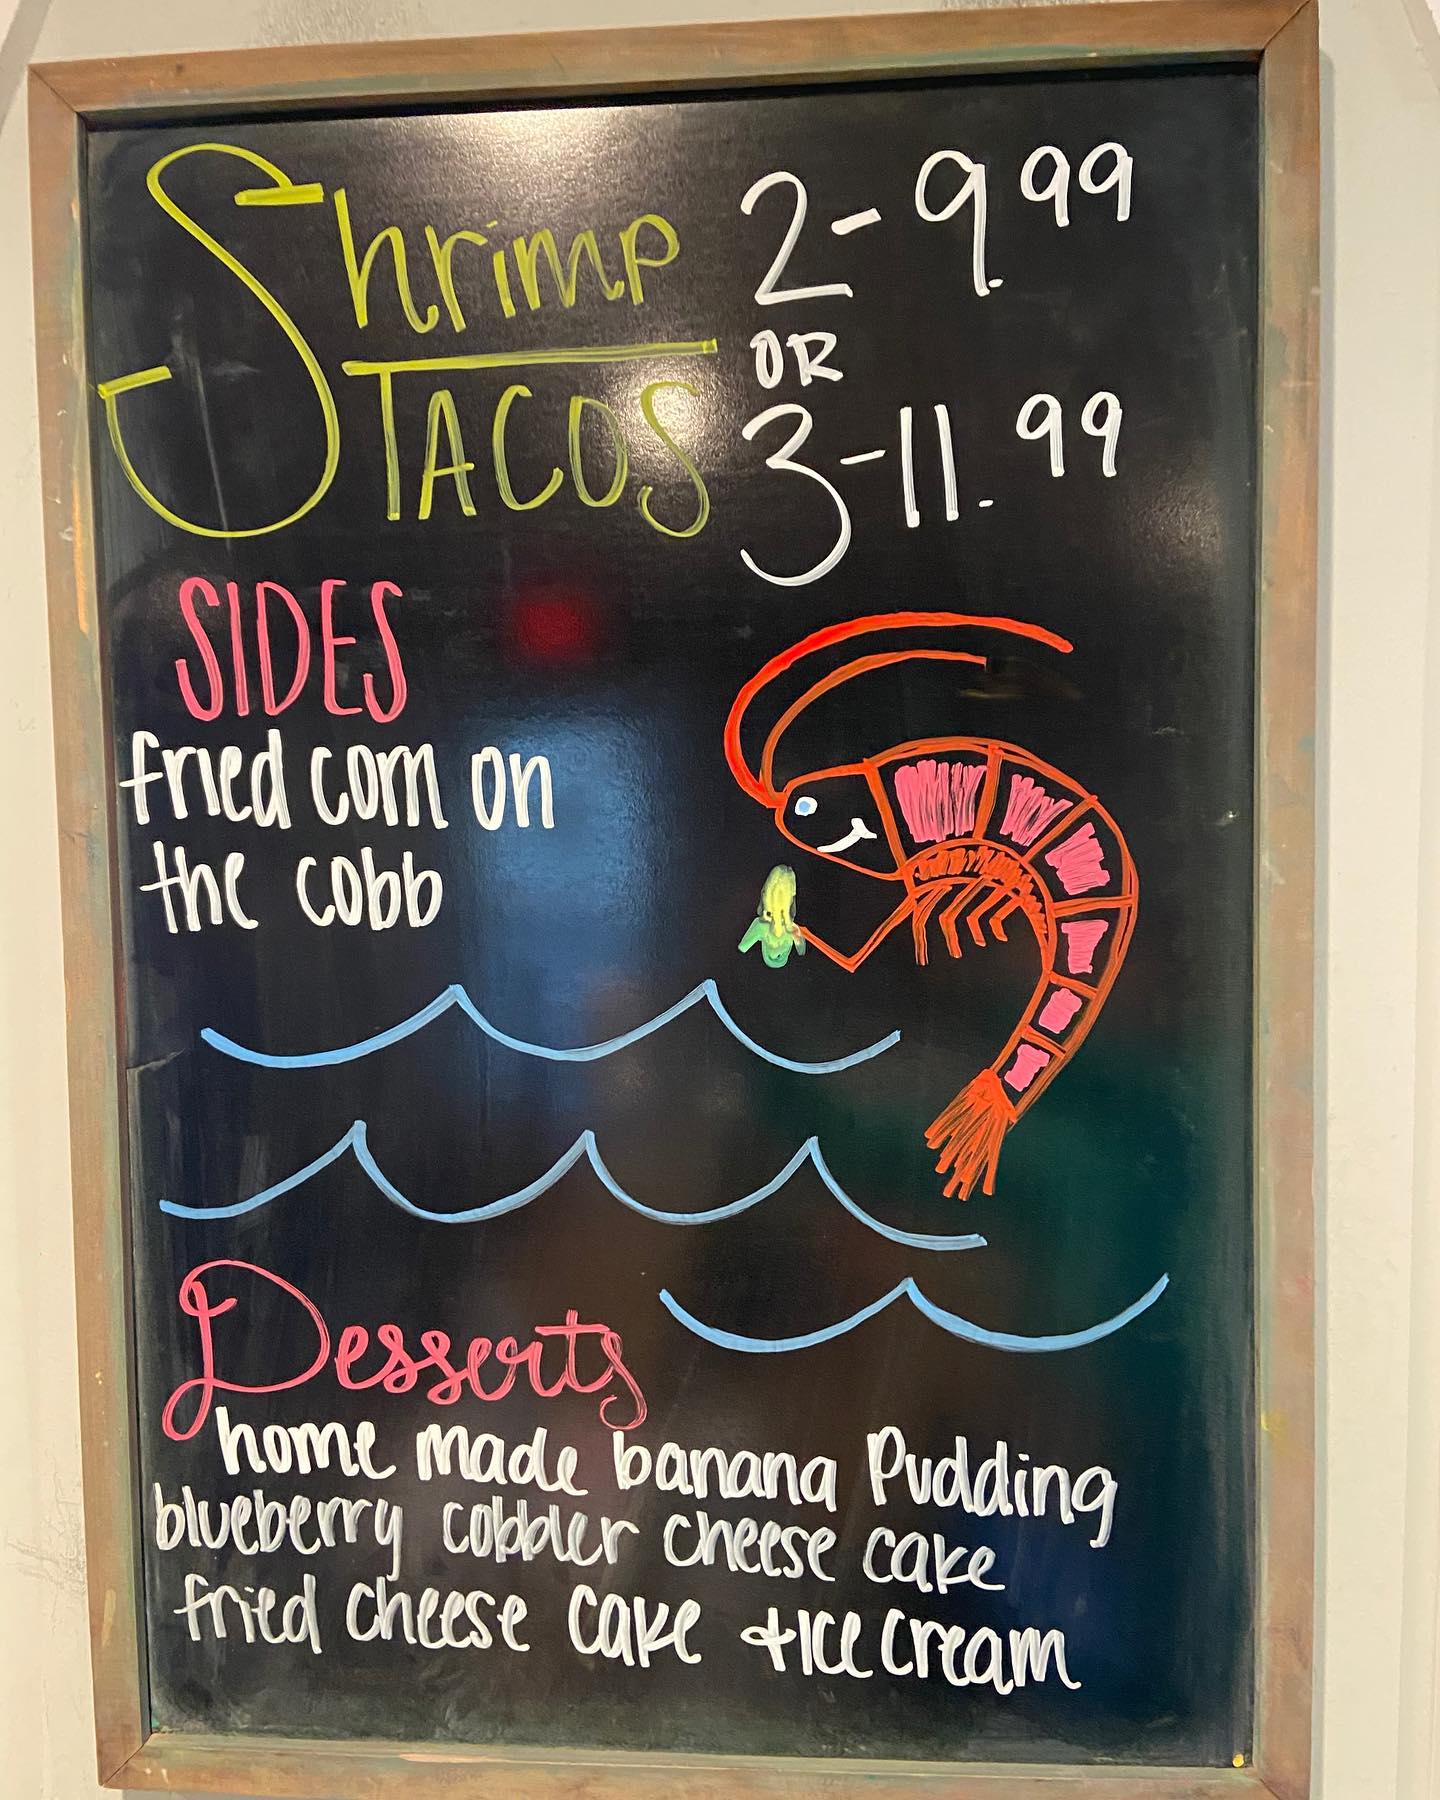 Shrimp
TACOS
2-9.99
OR
3-11.99
SIDES
fried corn on
the cobb
Desserts
home made banana Pudding
blueberry cobbler cheese cake
fried cheese cake + Ice cream